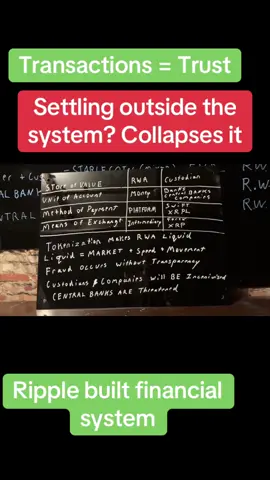 Transactions = Trust
Settling outside the
system? Collapses it
er + Cus
R.W.
AL BANK
R.W
NTRAL
R.
Store of VALUE RWA Custodian
Unit of Account Money Banks
Central Banks
Companies
Method of Payment PLATFORM SWIFT
XRPL
Means of Exchange Intermediary
XRP
Tokenization makes RWA Liquid
Liquid = MARKET + Speed + Movement
Fraud occurs without Transparency
Custodians & Companies will BE Incentivized
CENTRAL BANKS ARE Threatened
Ripple built financial
system